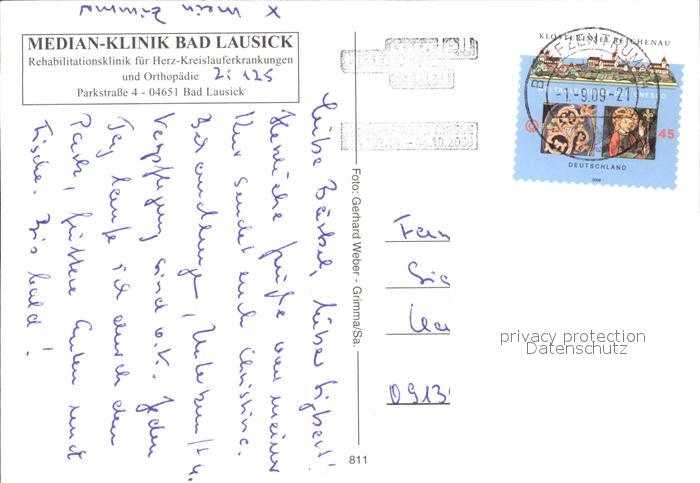 x mein Zimmer
MEDIAN-KLINIK BAD LAUSICK
Rehabilitationsklinik für Herz-Kreislauferkrankungen
und Orthopädie
Zi 125
Parkstraße 4 - 04651 Bad Lausick
Liebe Bärbel, lieber Sigbert!
Herzliche Grüße von meiner
Kur sendet euch Christine.
Behandlung, Unterkunft u.
Verpflegung sind o.k. Jeden
Tag laufe ich durch den
Park, füttere Enten und
Fische. Bis bald!
Foto: Gerhard Weber - Grimma/Sa.
811
KLOSTERINSEL REICHENAU
UNESCO
45
DEUTSCHLAND
2008
BRIEFZENTRUM
-1.-9.09-21
Fam
Sig
0913
privacy protection
Datenschutz